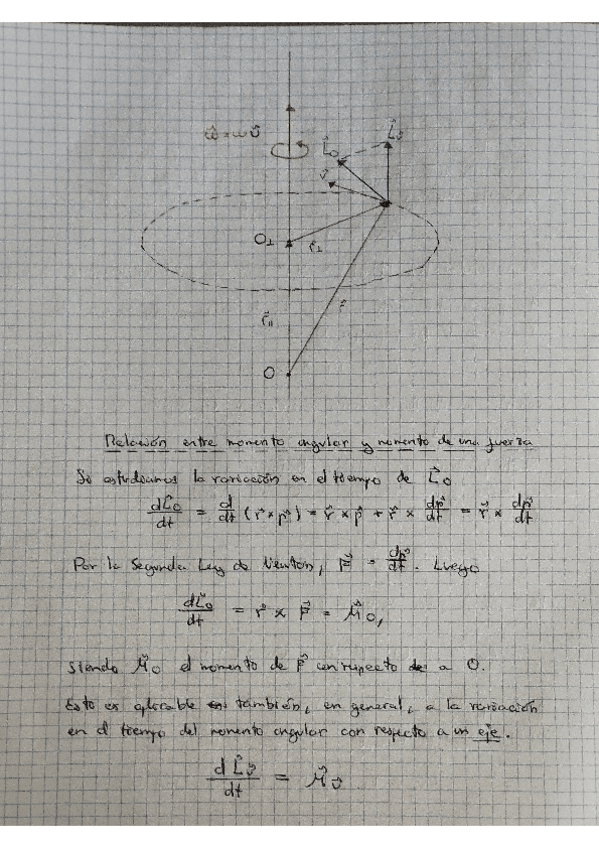 ω⃗ = ω υ⃗
L⃗υ⃗
L⃗o
v⃗
O⊥
r⃗⊥
r⃗
r⃗॥
O
Relación entre momento angular y momento de una fuerza
Si estudiamos la variación en el tiempo de L⃗o
dL⃗o/dt = d/dt (r⃗ × p⃗) = r⃗ × p⃗ + r⃗ × dp⃗/dt = r⃗ × dp⃗/dt
Por la Segunda Ley de Newton, F⃗ = dp⃗/dt. Luego
dL⃗o/dt = r⃗ × F⃗ = M⃗o,
siendo M⃗o el momento de F⃗ con respecto a O.
Esto es aplicable también, en general, a la variación
en el tiempo del momento angular con respecto a un eje.
dL⃗υ⃗/dt = M⃗υ⃗